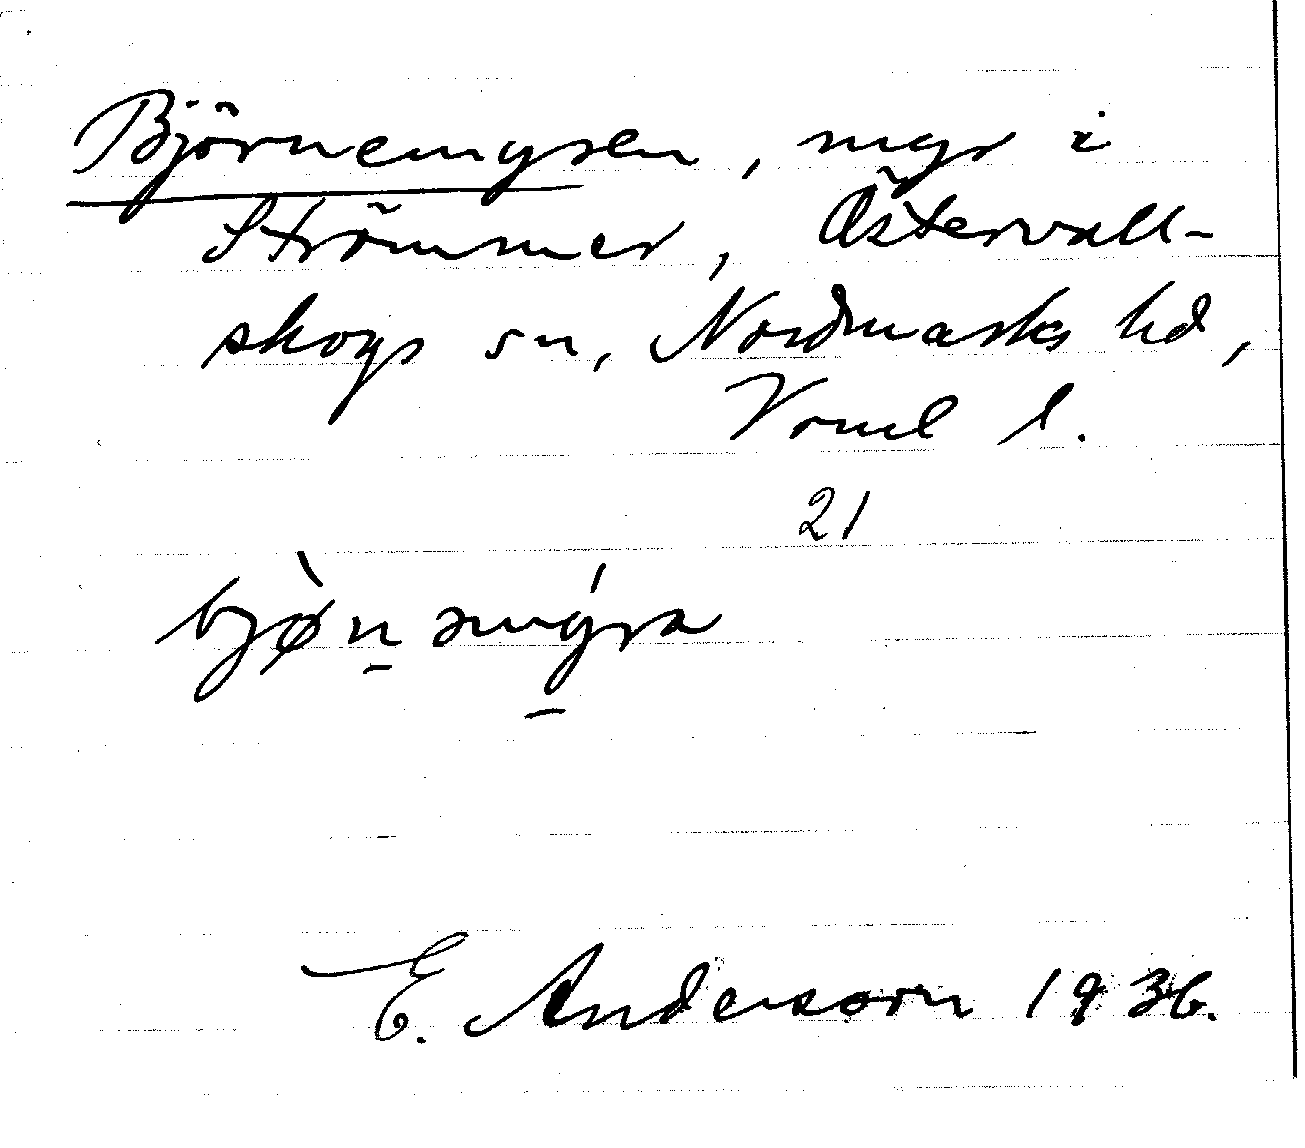 Björnemyren, myr i
Strömmer, Östervall-
skogs sn, Nordmarks hd,
Vrml l.
21
bjø̀n emýra
E. Anderson 1936.